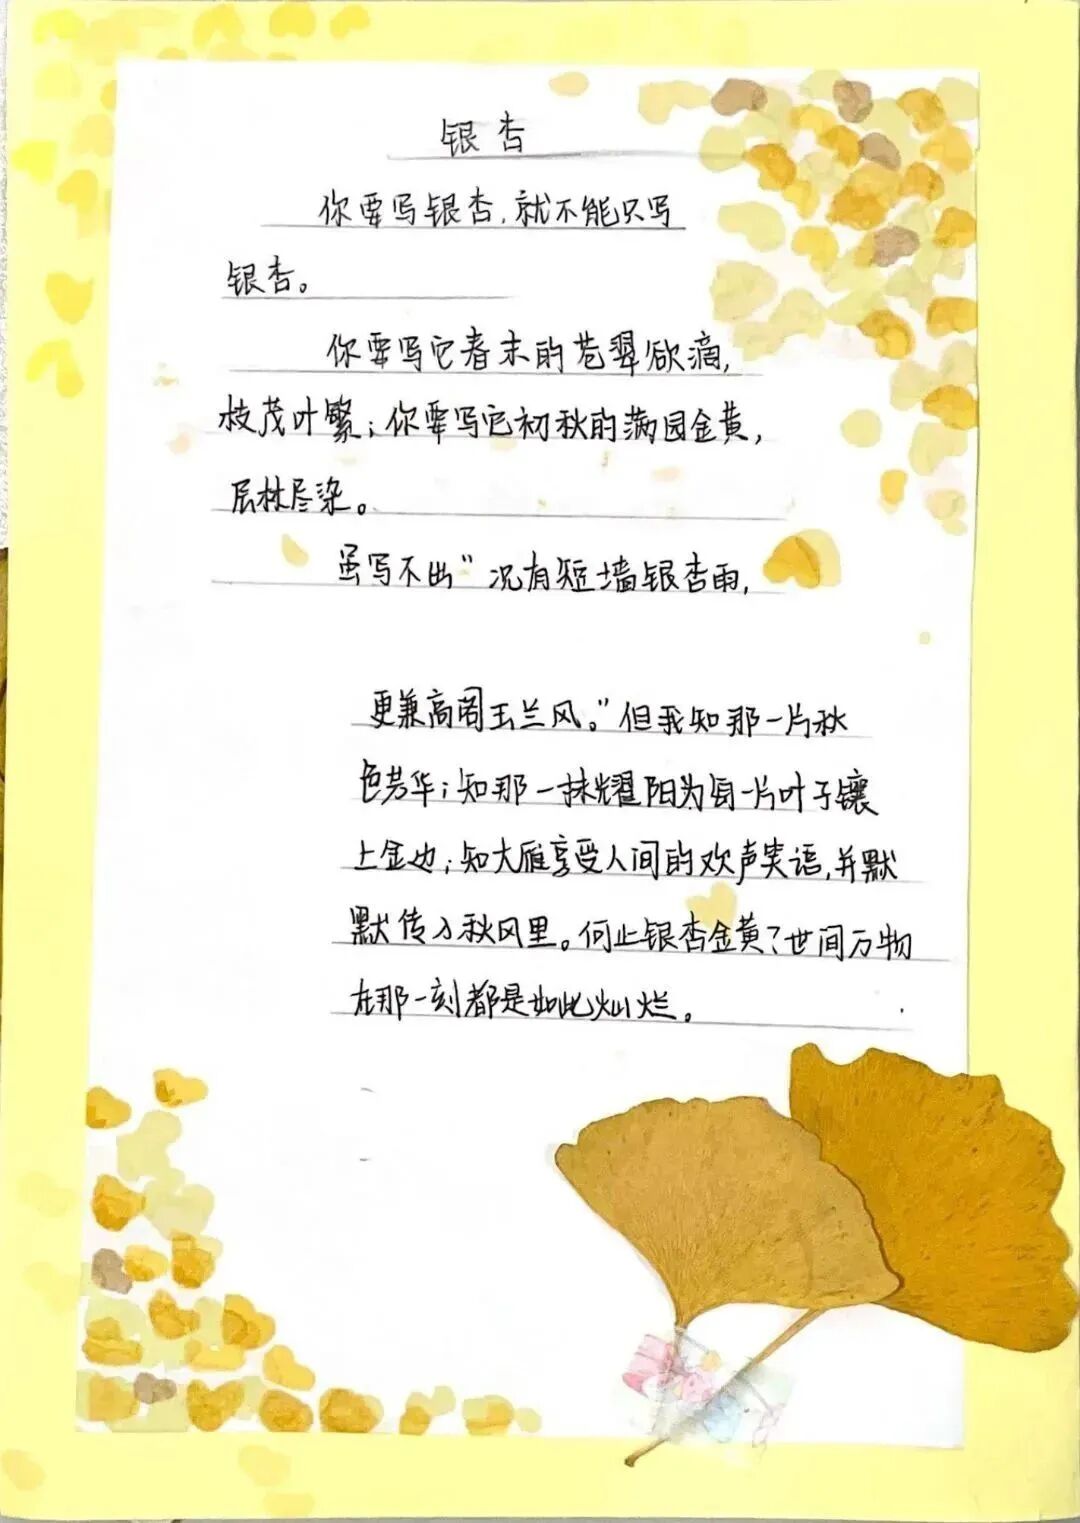 银杏
你要写银杏,就不能只写
银杏。
你要写它春末的苍翠欲滴,
枝茂叶繁;你要写它初秋的满园金黄,
层林尽染。
虽写不出"况有短墙银杏雨,
更兼高阁玉兰风。"但我知那一片秋
色芳华;知那一抹耀阳为每一片叶子镶
上金边;知大雁享受人间的欢声笑语,并默
默传入秋风里。何止银杏金黄?世间万物
在那一刻都是如此灿烂。